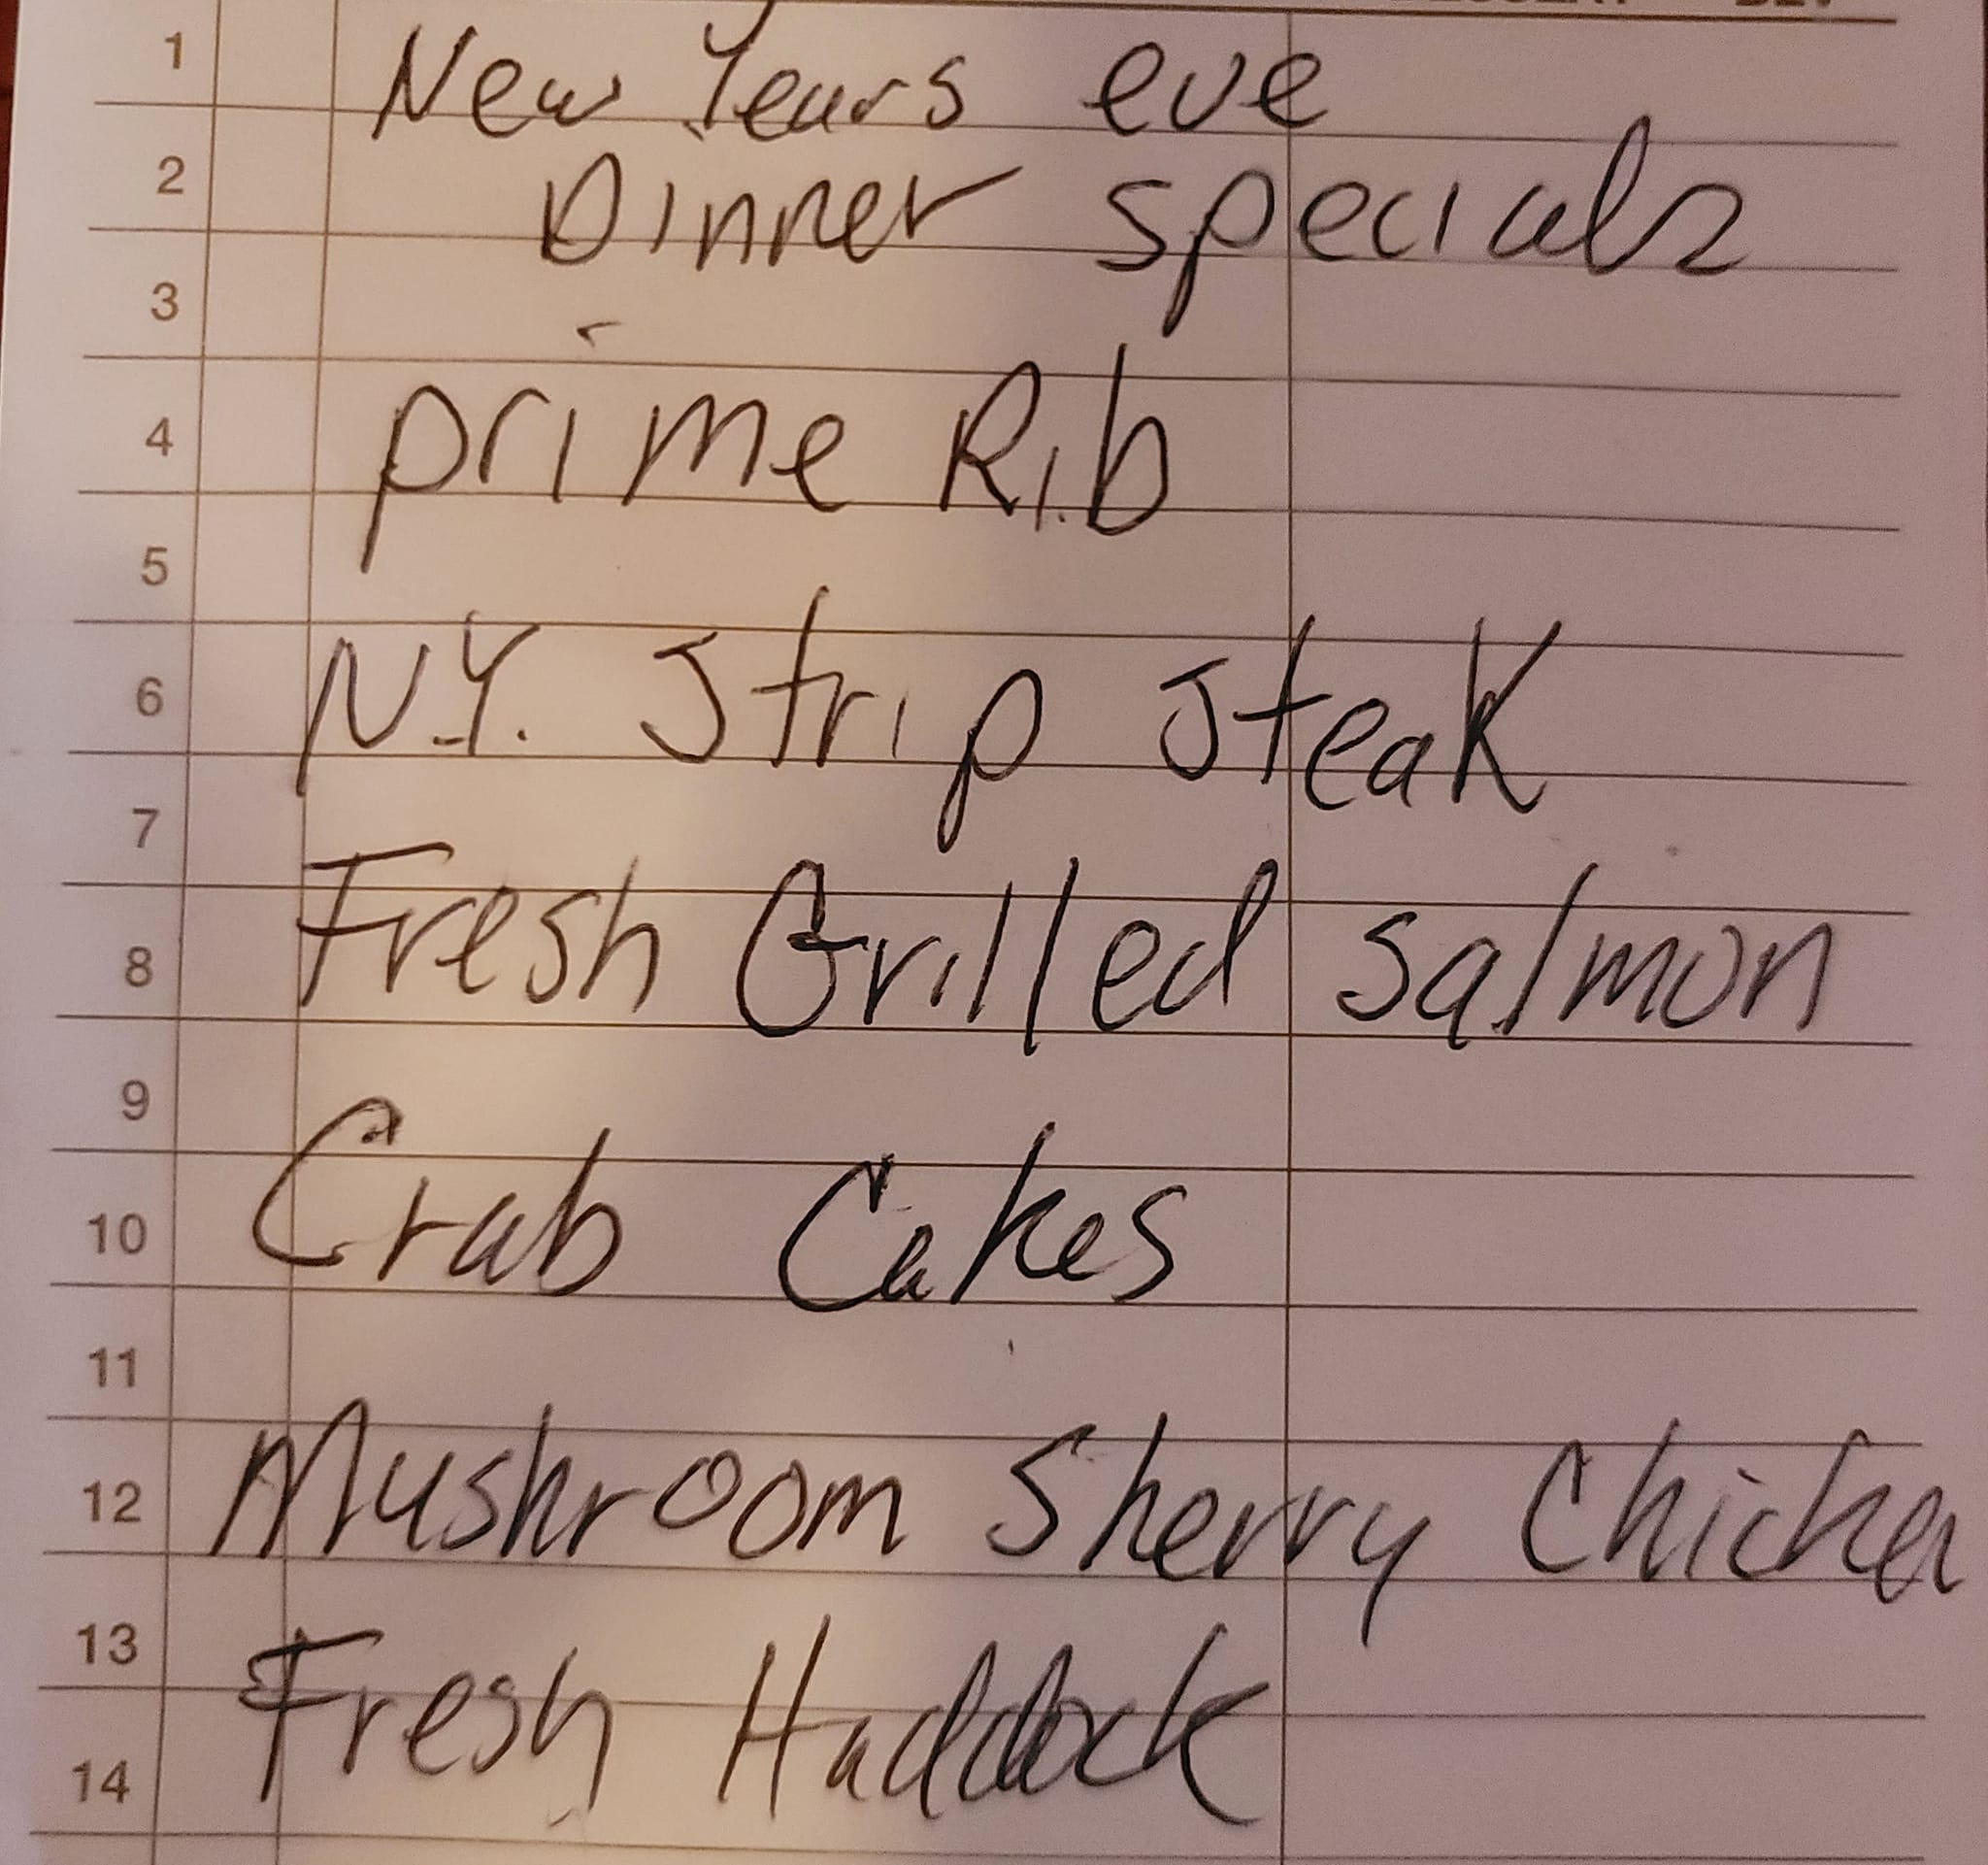 1 New Years eve
2 Dinner specials
3
4 prime Rib
5
6 N.Y. Strip Steak
7
8 Fresh Grilled Salmon
9
10 Crab Cakes
11
12 Mushroom Sherry Chicken
13
14 Fresh Haddock